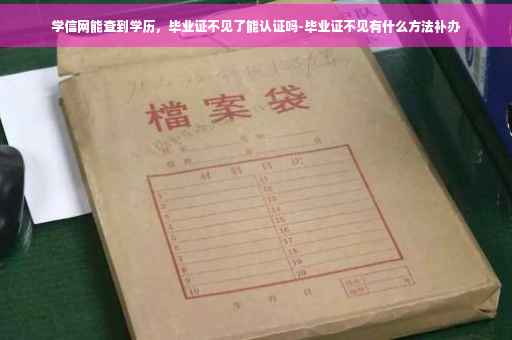 学信网能查到学历，毕业证不见了能认证吗-毕业证不见有什么方法补办
檔案袋
材料目次
1 11
2 12
3 13
4 14
5 15
6 16
7 17
8 18
9 19
10 20
年 月 日